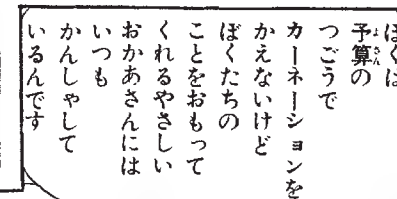 ぼくは
予算の
つごうで
カーネーションを
かえないけど
ぼくたちの
ことをおもって
くれるやさしい
おかあさんには
いつも
かんしゃして
いるんです